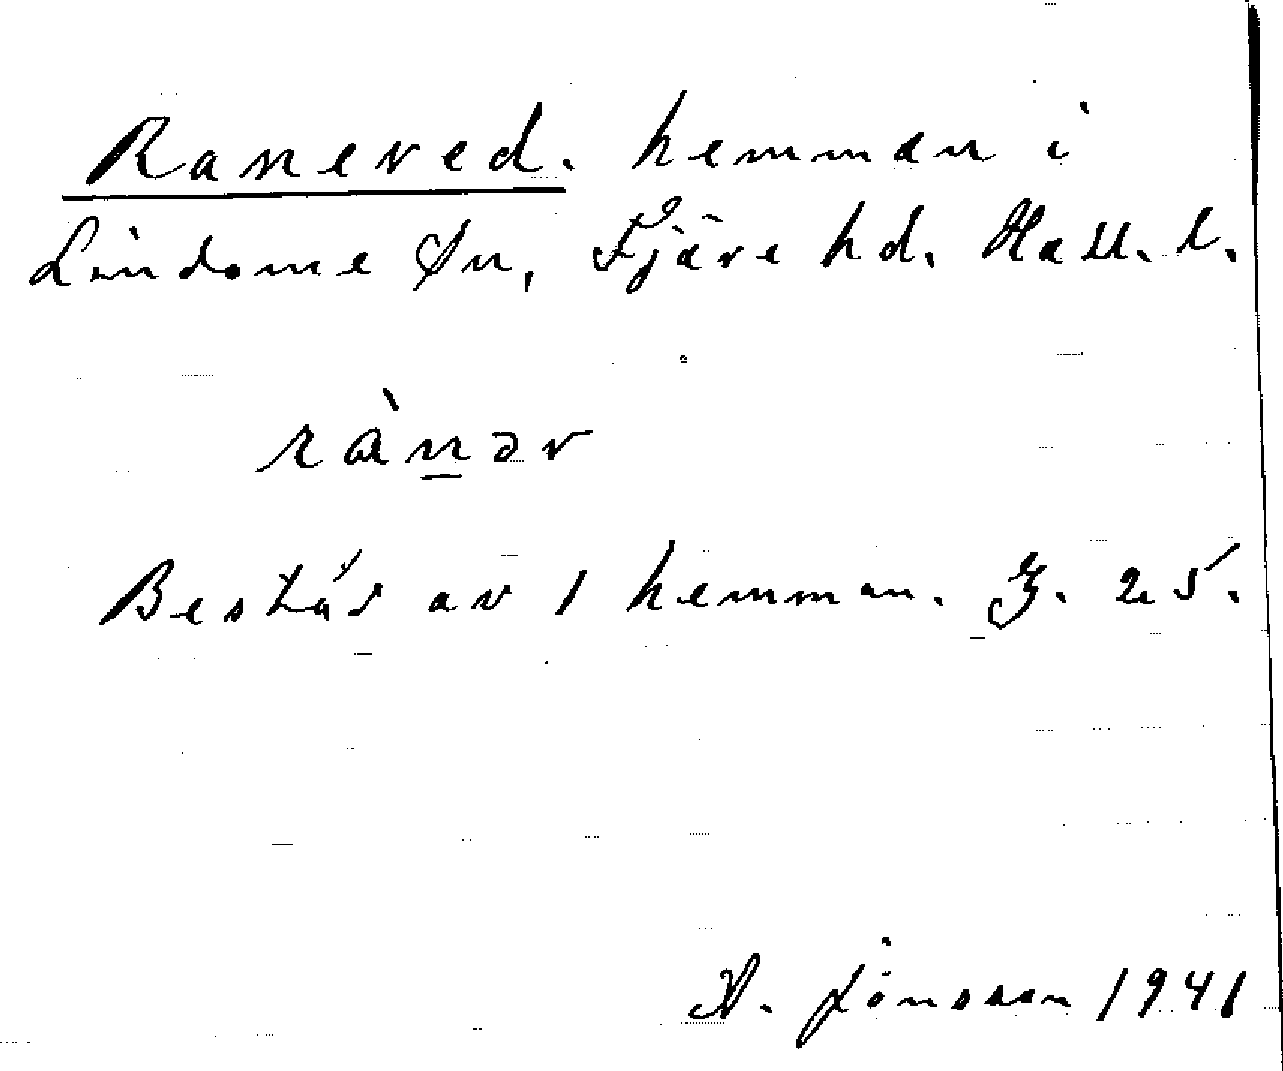 Ranered. hemman i
Lindome sn, Fjäre hd. Hall. l.
rànər
Består av 1 hemman. J. 25.
A. Jönsson 1941